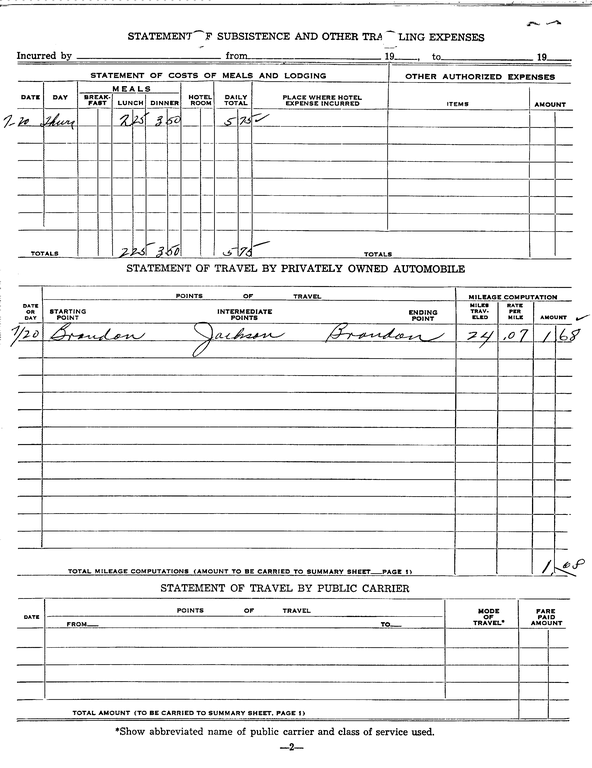 STATEMENT OF SUBSISTENCE AND OTHER TRA LING EXPENSES
Incurred by from 19 , to 19
STATEMENT OF COSTS OF MEALS AND LODGING OTHER AUTHORIZED EXPENSES
DATE DAY MEALS HOTEL ROOM DAILY TOTAL PLACE WHERE HOTEL EXPENSE INCURRED ITEMS AMOUNT
BREAK-FAST LUNCH DINNER
7-20 Thurs 2 25 3 50 5 75 ✓
TOTALS 2 25 3 50 5 75 TOTALS
STATEMENT OF TRAVEL BY PRIVATELY OWNED AUTOMOBILE
POINTS OF TRAVEL MILEAGE COMPUTATION
DATE OR DAY STARTING POINT INTERMEDIATE POINTS ENDING POINT MILES TRAV-ELED RATE PER MILE AMOUNT ✓
7/20 Brandon Jackson Brandon 24 .07 1 68
TOTAL MILEAGE COMPUTATIONS (AMOUNT TO BE CARRIED TO SUMMARY SHEET PAGE 1) 1.68
STATEMENT OF TRAVEL BY PUBLIC CARRIER
DATE POINTS OF TRAVEL MODE OF TRAVEL* FARE PAID AMOUNT
FROM TO
TOTAL AMOUNT (TO BE CARRIED TO SUMMARY SHEET, PAGE 1)
*Show abbreviated name of public carrier and class of service used.
—2—